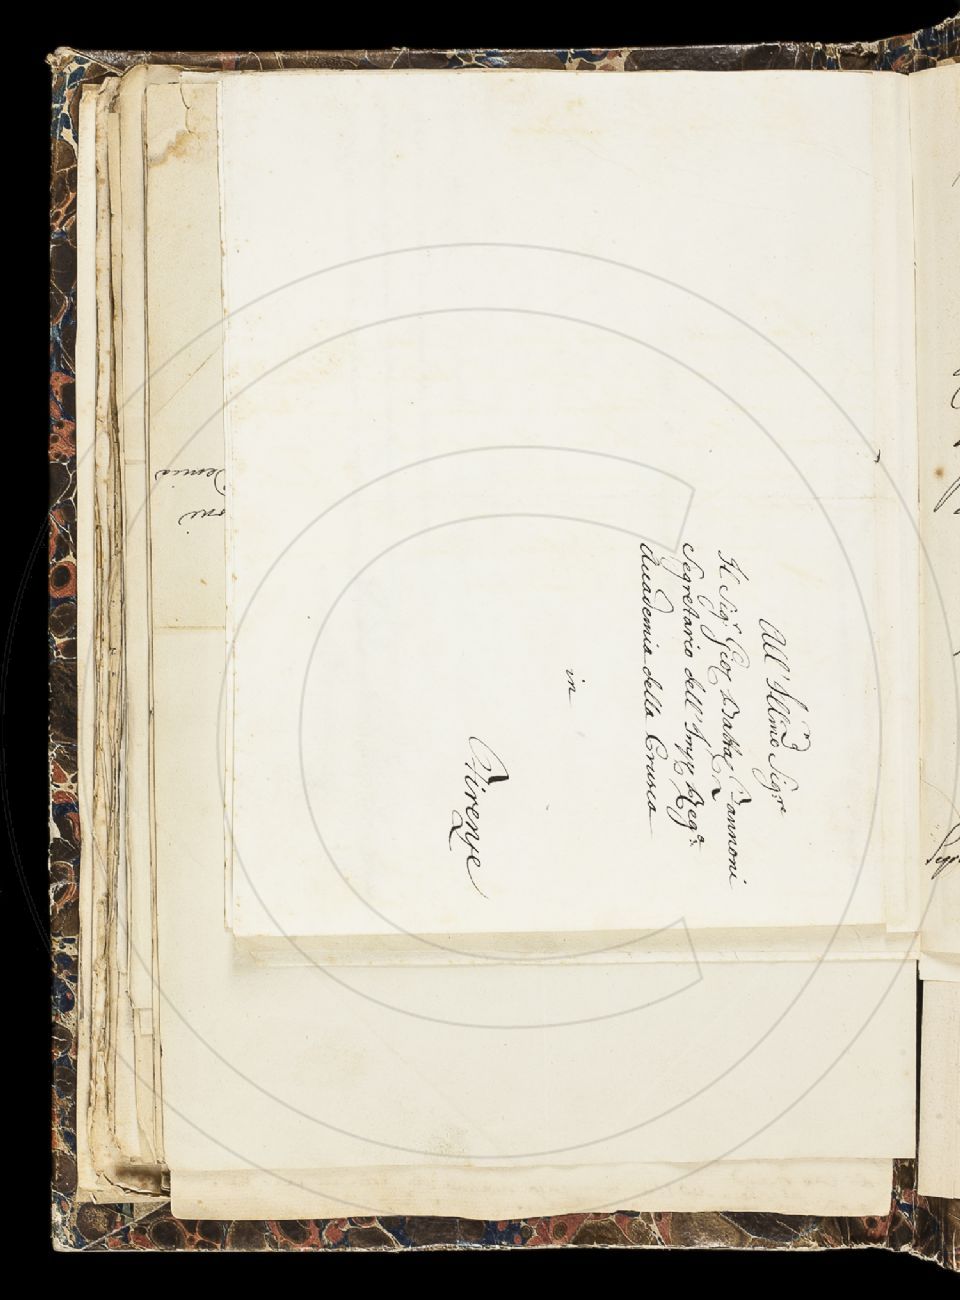 All' Ill.mo Sig.re
Il Sig.r Gio: Batta Zannoni
Segretario dell' Imp. Reg.
Accademia della Crusca
in
Firenze